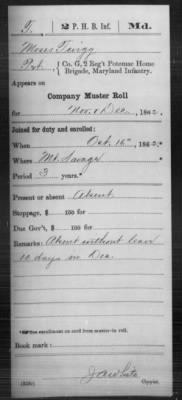 T. 2 P. H. B. Inf. Md.
Moses Twigg
Pvt., Co. G, 2 Reg't Potomac Home
Brigade, Maryland Infantry.
Appears on
Company Muster Roll
for Nov. & Dec., 186
Joined for duty and enrolled:
When Oct. 15", 186
Where Mt. Savage
Period 3 years.*
Present or absent Absent
Stoppage, $ 100 for
Due Gov't, $ 100 for
Remarks: Absent without leave
10 days in Dec.
*See enrollment on card from muster-in roll.
Book mark:
(358c) Copyist.